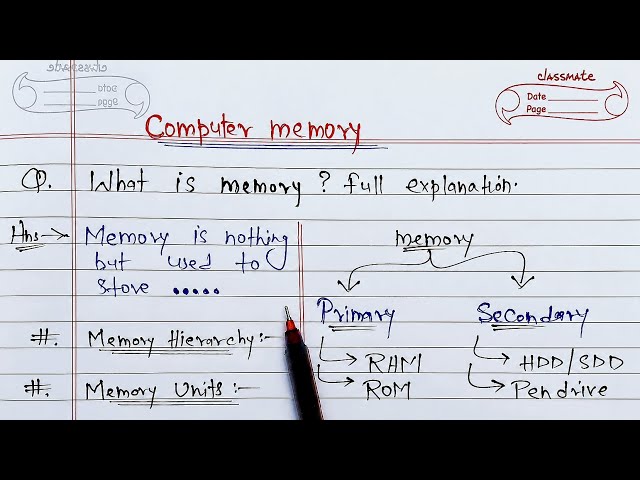 classmate
Date
Page
Computer memory
Q. What is memory ? full explanation.
Ans → Memory is nothing
but used to
store .....
memory
Primary
RAM
ROM
Secondary
HDD/SDD
Pendrive
#. Memory Hierarchy:-
#. Memory Units:-